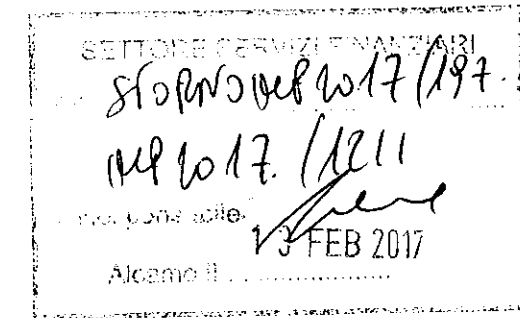 SETTORE SERVIZI FINANZIARI
STORNO IMP 2017/197.
IMP 2017. /1211
13 FEB 2017
Alcamo li ....................